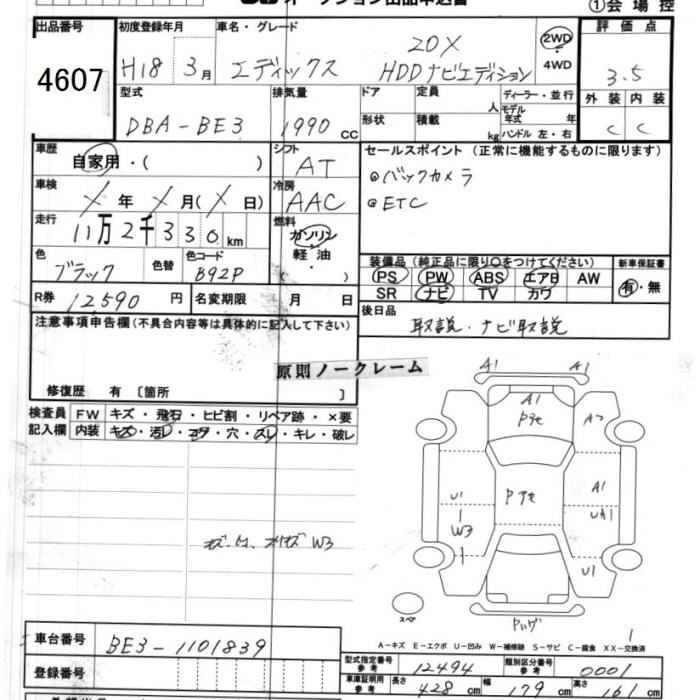 ①会場控
出品番号
4607
初度登録年月
H18 3月
車名・グレード
エディックス
20X
HDDナビエディション
2WD
4WD
評価点
3.5
外装 内装
C C
型式
DBA-BE3
排気量
1990 cc
ドア
形状
定員
人
積載
kg
ディーラー・並行
モデル
年式 年
ハンドル 左・右
車歴
自家用・( )
シフト
AT
セールスポイント (正常に機能するものに限ります)
◎バックカメラ
◎ETC
車検
X年 X月(X日)
冷房
AAC
走行
11万2千330km
燃料
ガソリン
軽油
・
( )
色
ブラック
色替
色コード
B92P
装備品(純正品に限り○をつけてください)
PS PW ABS エアB AW
SR ナビ TV カワ
新車保証書
有・無
R券
12,590円
名変期限 月 日
後日品
取説・ナビ取説
注意事項申告欄(不具合内容等は具体的に記入して下さい)
原則ノークレーム
修復歴 有 〔箇所 〕
検査員
記入欄
FW キズ・飛石・ヒビ割・リペア跡・×要
内装 キズ・汚レ・コゲ・穴・スレ・キレ・破レ
W3
A1 A1
A1
A1
U1
W3
UA1
U1
スペア
1
A-キズ E-エクボ U-凹み W-補修跡 S-サビ C-腐食 XX-交換済
車台番号
BE3-1101839
登録番号
型式指定番号
参考
12494
類別区分番号
参考
0001
車庫証明用
参考
長さ
428 cm
幅
179 cm
高さ
161 cm